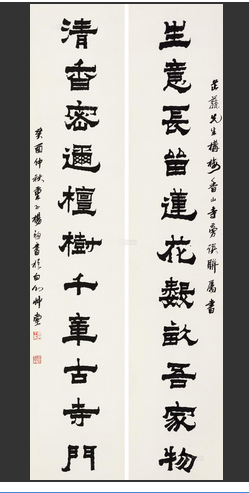 先生香山寺旁聯屬書
生意長留蓮花數畝吾家物
清香密邇檀樹千章古寺門
癸酉仲秋書於草堂